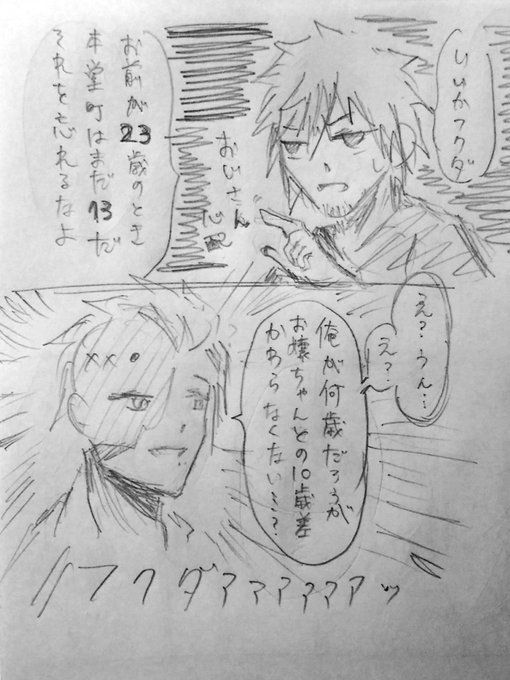 いいかフクダ
お前が23歳のとき
本堂町はまだ13だ
それを忘れるなよ
おじさん
心配
え？うん…
え？
俺が何歳だろうが
お嬢ちゃんとの10歳差
かわらなくない…？
フクダァァァァァァッ